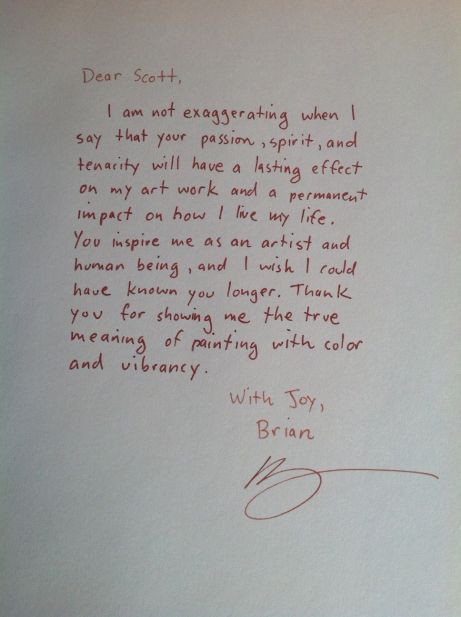 Dear Scott,
I am not exaggerating when I
say that your passion, spirit, and
tenacity will have a lasting effect
on my art work and a permanent
impact on how I live my life.
You inspire me as an artist and
human being, and I wish I could
have known you longer. Thank
you for showing me the true
meaning of painting with color
and vibrancy.
With Joy,
Brian